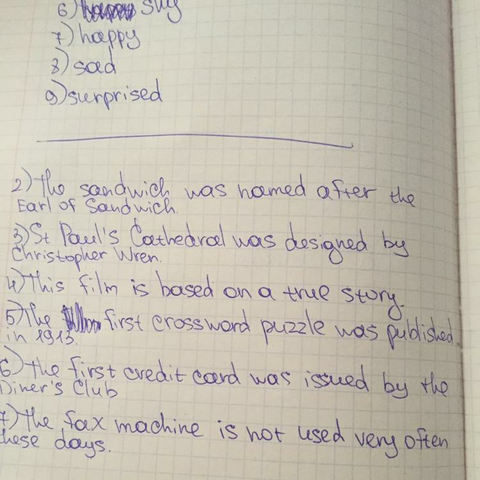 6) shy
7) happy
8) sad
9) surprised
2) The sandwich was named after the
Earl of Sandwich.
3) St Paul's Cathedral was designed by
Christopher Wren.
4) This film is based on a true story.
5) The first crossword puzzle was published
in 1913.
6) The first credit card was issued by the
Diner's Club
7) The fax machine is not used very often
these days.